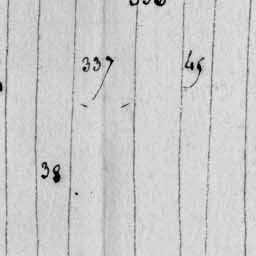 337 49
38